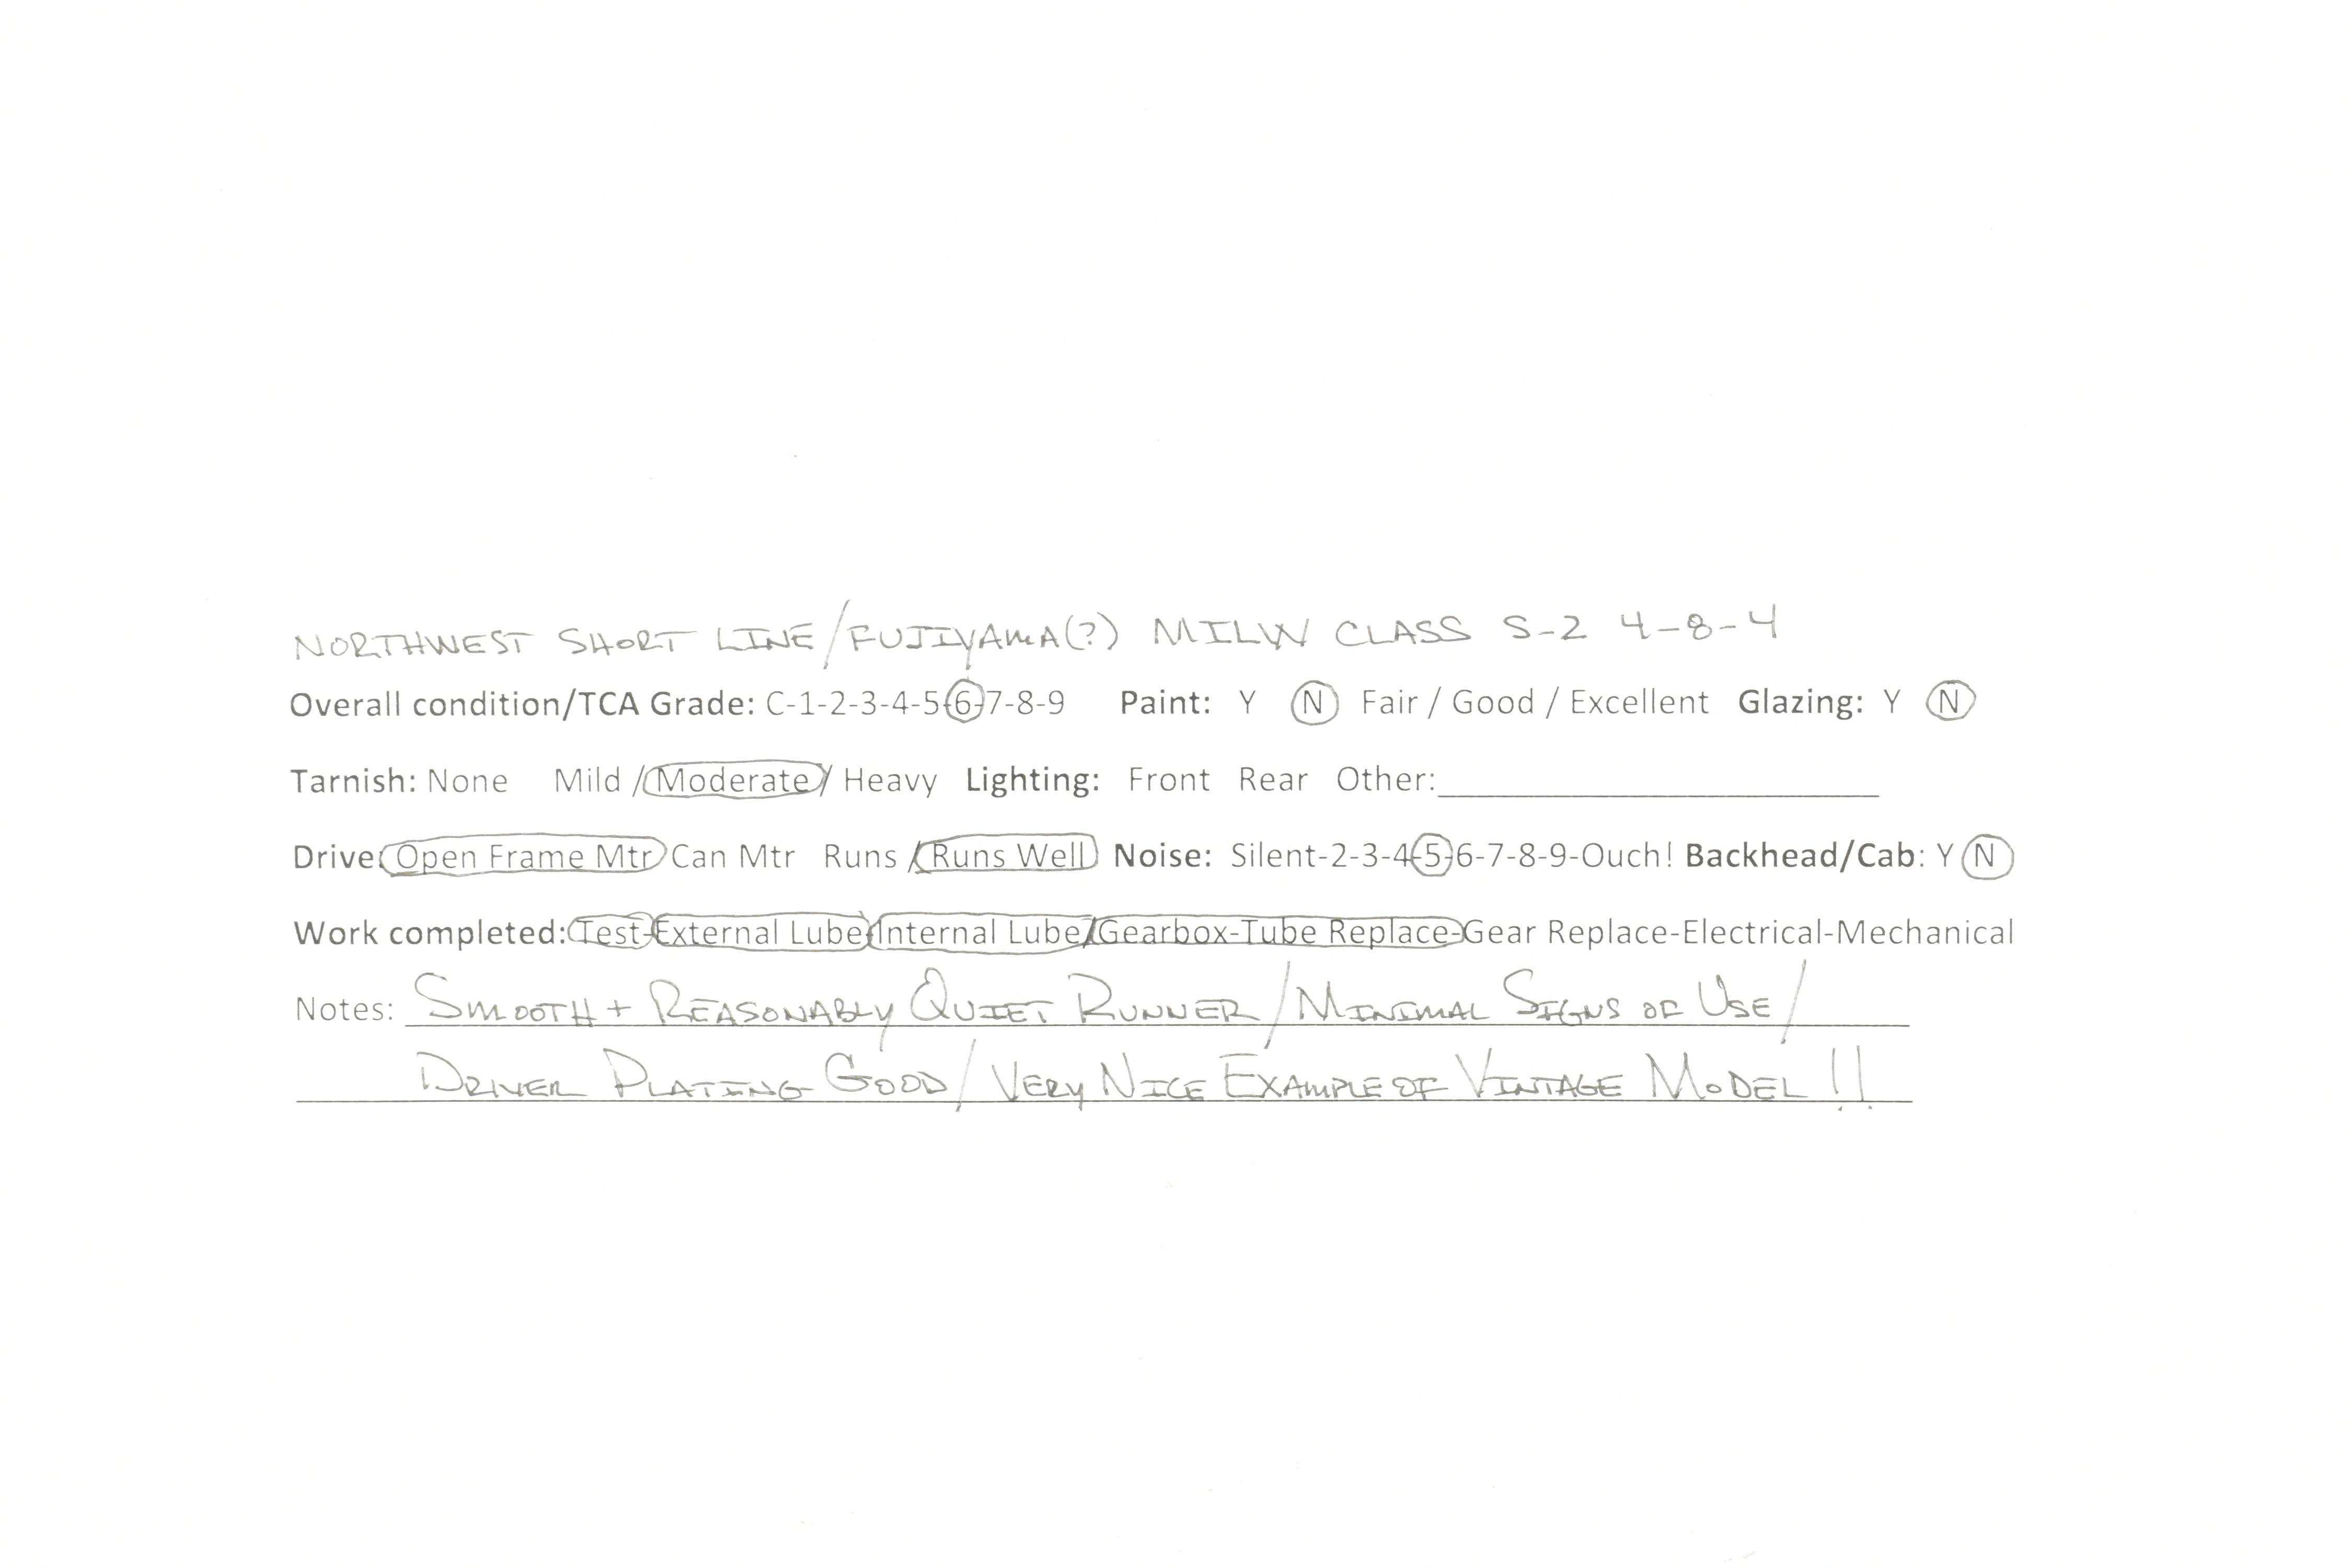 NORTHWEST SHORT LINE/FUJIYAMA(?) MILW CLASS S-2 4-8-4
Overall condition/TCA Grade: C-1-2-3-4-5-6-7-8-9 Paint: Y N Fair / Good / Excellent Glazing: Y N
Tarnish: None Mild / Moderate / Heavy Lighting: Front Rear Other:
Drive: Open Frame Mtr Can Mtr Runs / Runs Well Noise: Silent-2-3-4-5-6-7-8-9-Ouch! Backhead/Cab: Y N
Work completed: Test-External Lube/Internal Lube/Gearbox-Tube Replace-Gear Replace-Electrical-Mechanical
Notes: SMOOTH + REASONABLY QUIET RUNNER/MINIMAL SIGNS OF USE/
DRIVER PLATING GOOD/VERY NICE EXAMPLE OF VINTAGE MODEL!!